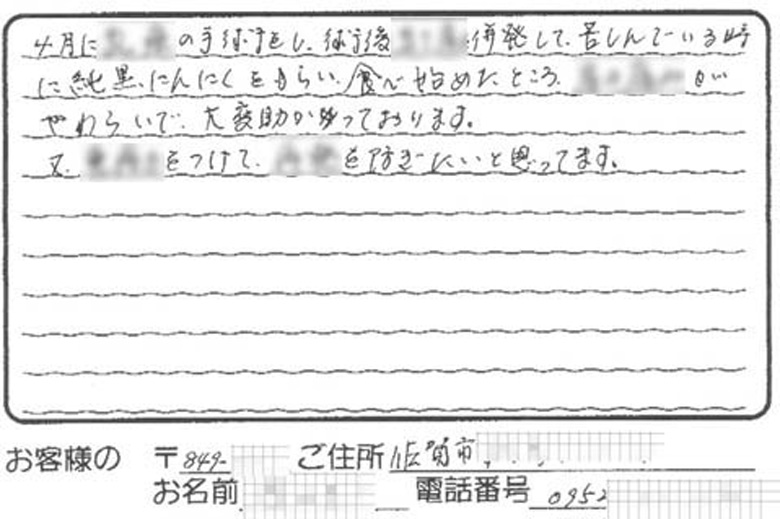 4月に の手術をし、術後 併発して、苦しんでいる時
に純黒にんにくをもらい、食べ始めたところ、 が
やわらいで、大変助かっております。
又、 をつけて、 を防ぎたいと思ってます。
お客様の 〒849- ご住所 佐賀市
お名前 電話番号 0952